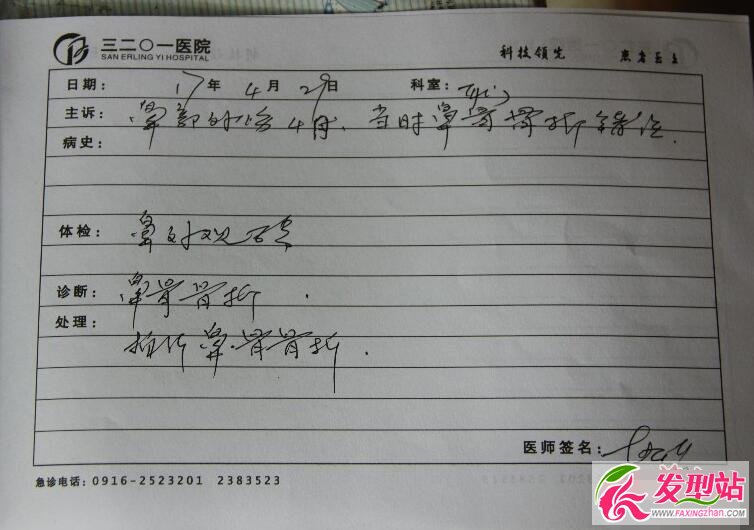 三二〇一医院
SAN ERLING YI HOSPITAL
科技领先 患者至上
日期： 17 年 4 月 29 日 科室：
主诉： 鼻部外伤 4月，当时鼻骨骨折错位.
病史：
体检： 鼻外观
诊断： 鼻骨骨折.
处理：
鼻骨骨折.
医师签名：
急诊电话：0916-2523201 2383523
发型站
www.FAXINGZHAN.com